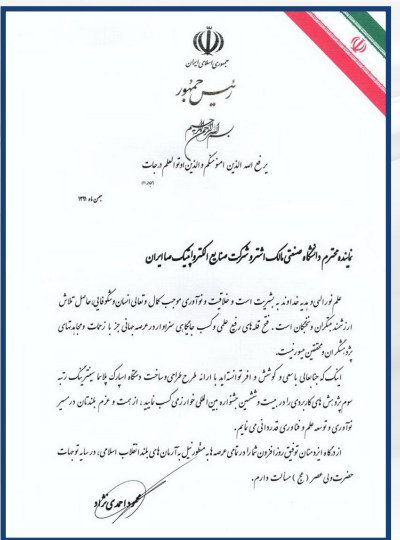 جمهوری اسلامی ایران
رئیس جمهور
بسم الله الرحمن الرحیم
یرفع الله الذین امنو منکم والذین اوتوالعلم درجات
بهمن ماه ۱۳۹۱
نماینده محترم دانشگاه صنعتی مالک اشتر و شرکت صنایع الکترواپتیک صاایران
علم نور الهی و هدیه خداوند به بشریت است و خلاقیت و نوآوری موجب کمال و تعالی انسان و شکوفایی، حاصل تلاش
ارزشمند متفکران و نخبگان است. فتح قله های رفیع علمی و کسب جایگاهی سزاوار در عرصه جهانی جز با زحمات و مجاهدتهای
پژوهشگران و محققین میسور نیست.
اینک که جنابعالی با سعی و کوشش وافر توانسته اید با ارائه طرح طراحی و ساخت دستگاه اسپارک پلاسما سینترینگ رتبه
سوم پژوهش های کاربردی را در بیست و ششمین جشنواره بین المللی خوارزمی کسب نمایید، از همت و عزم بلندتان در مسیر
نوآوری و توسعه علم و فناوری قدردانی می نمایم.
از درگاه ایزد منان توفیق روزافزون شما را در تمامی عرصه ها به منظور نیل به آرمان های بلند انقلاب اسلامی، در سایه توجهات
حضرت ولی عصر (عج) مسألت دارم.
محمود احمدی نژاد